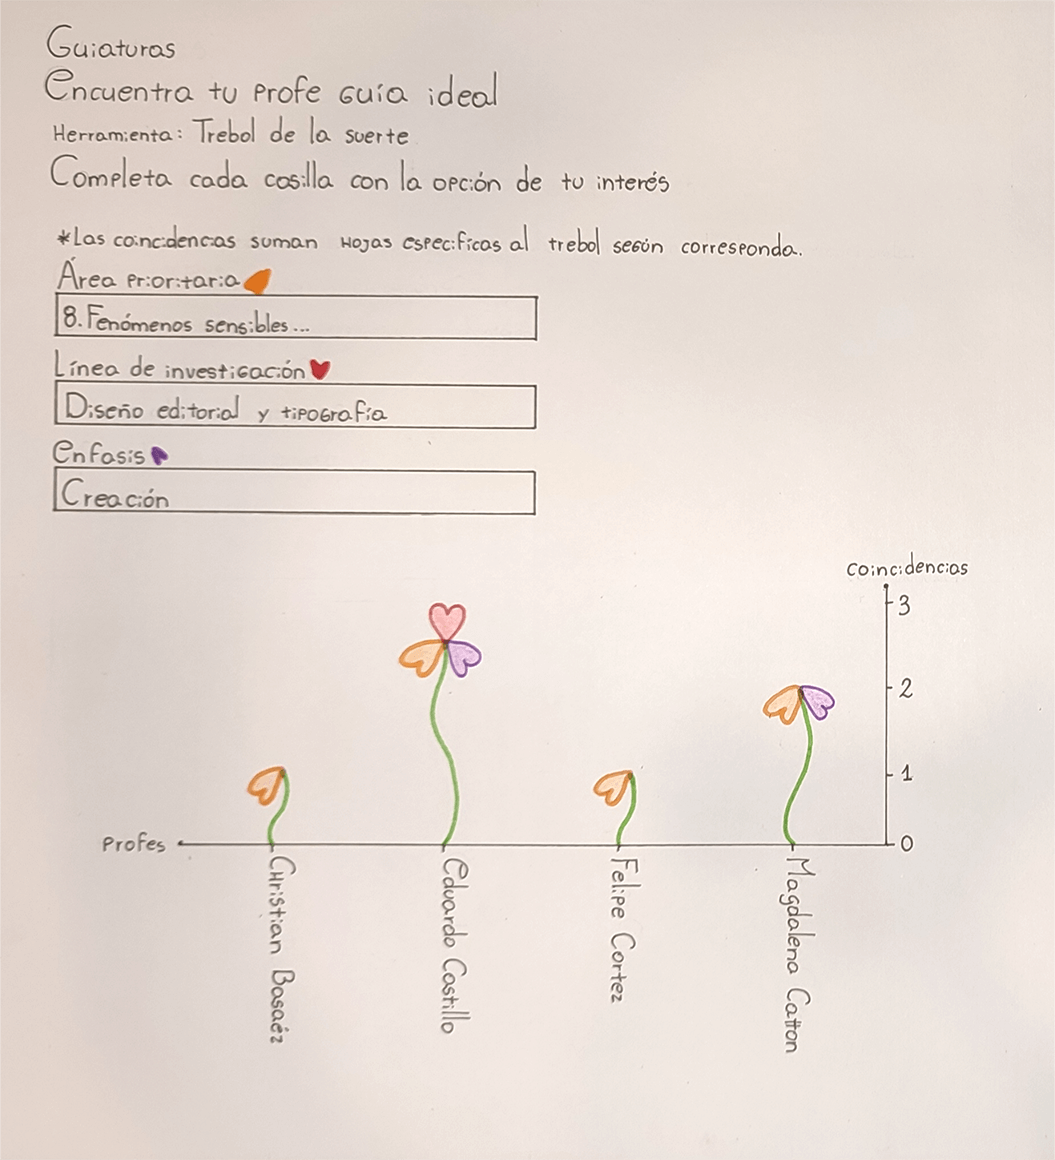 Guiaturas
Encuentra tu profe guía ideal
Herramienta: Trebol de la suerte
Completa cada casilla con la opción de tu interés
*Las coincidencias suman hojas especificas al trebol según corresponda.
Área prioritaria
8. Fenómenos sensibles...
Línea de investigación
Diseño editorial y tipografía
Enfasis
Creación
coincidencias
3
2
1
0
Profes
Christian Basaéz
Eduardo Castillo
Felipe Cortez
Magdalena Catton